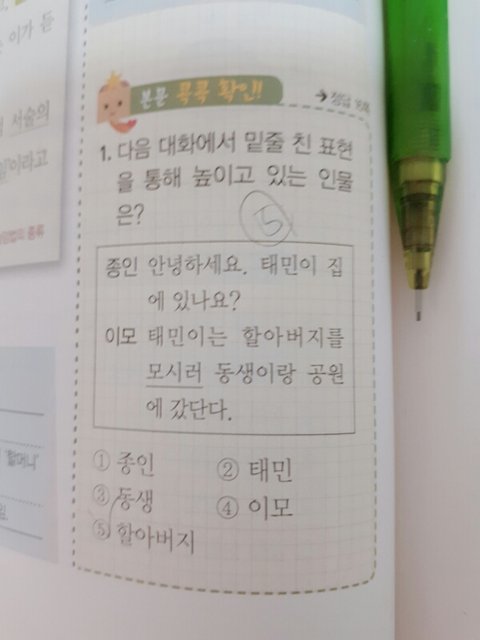 이가 듣
서술의
이라고
의 종류
본문 콕콕 확인!
→ 정답
1. 다음 대화에서 밑줄 친 표현
을 통해 높이고 있는 인물
은?
⑤
종인 안녕하세요. 태민이 집
에 있나요?
이모 태민이는 할아버지를
모시러 동생이랑 공원
에 갔단다.
① 종인 ② 태민
③ 동생 ④ 이모
⑤ 할아버지
'할머니'